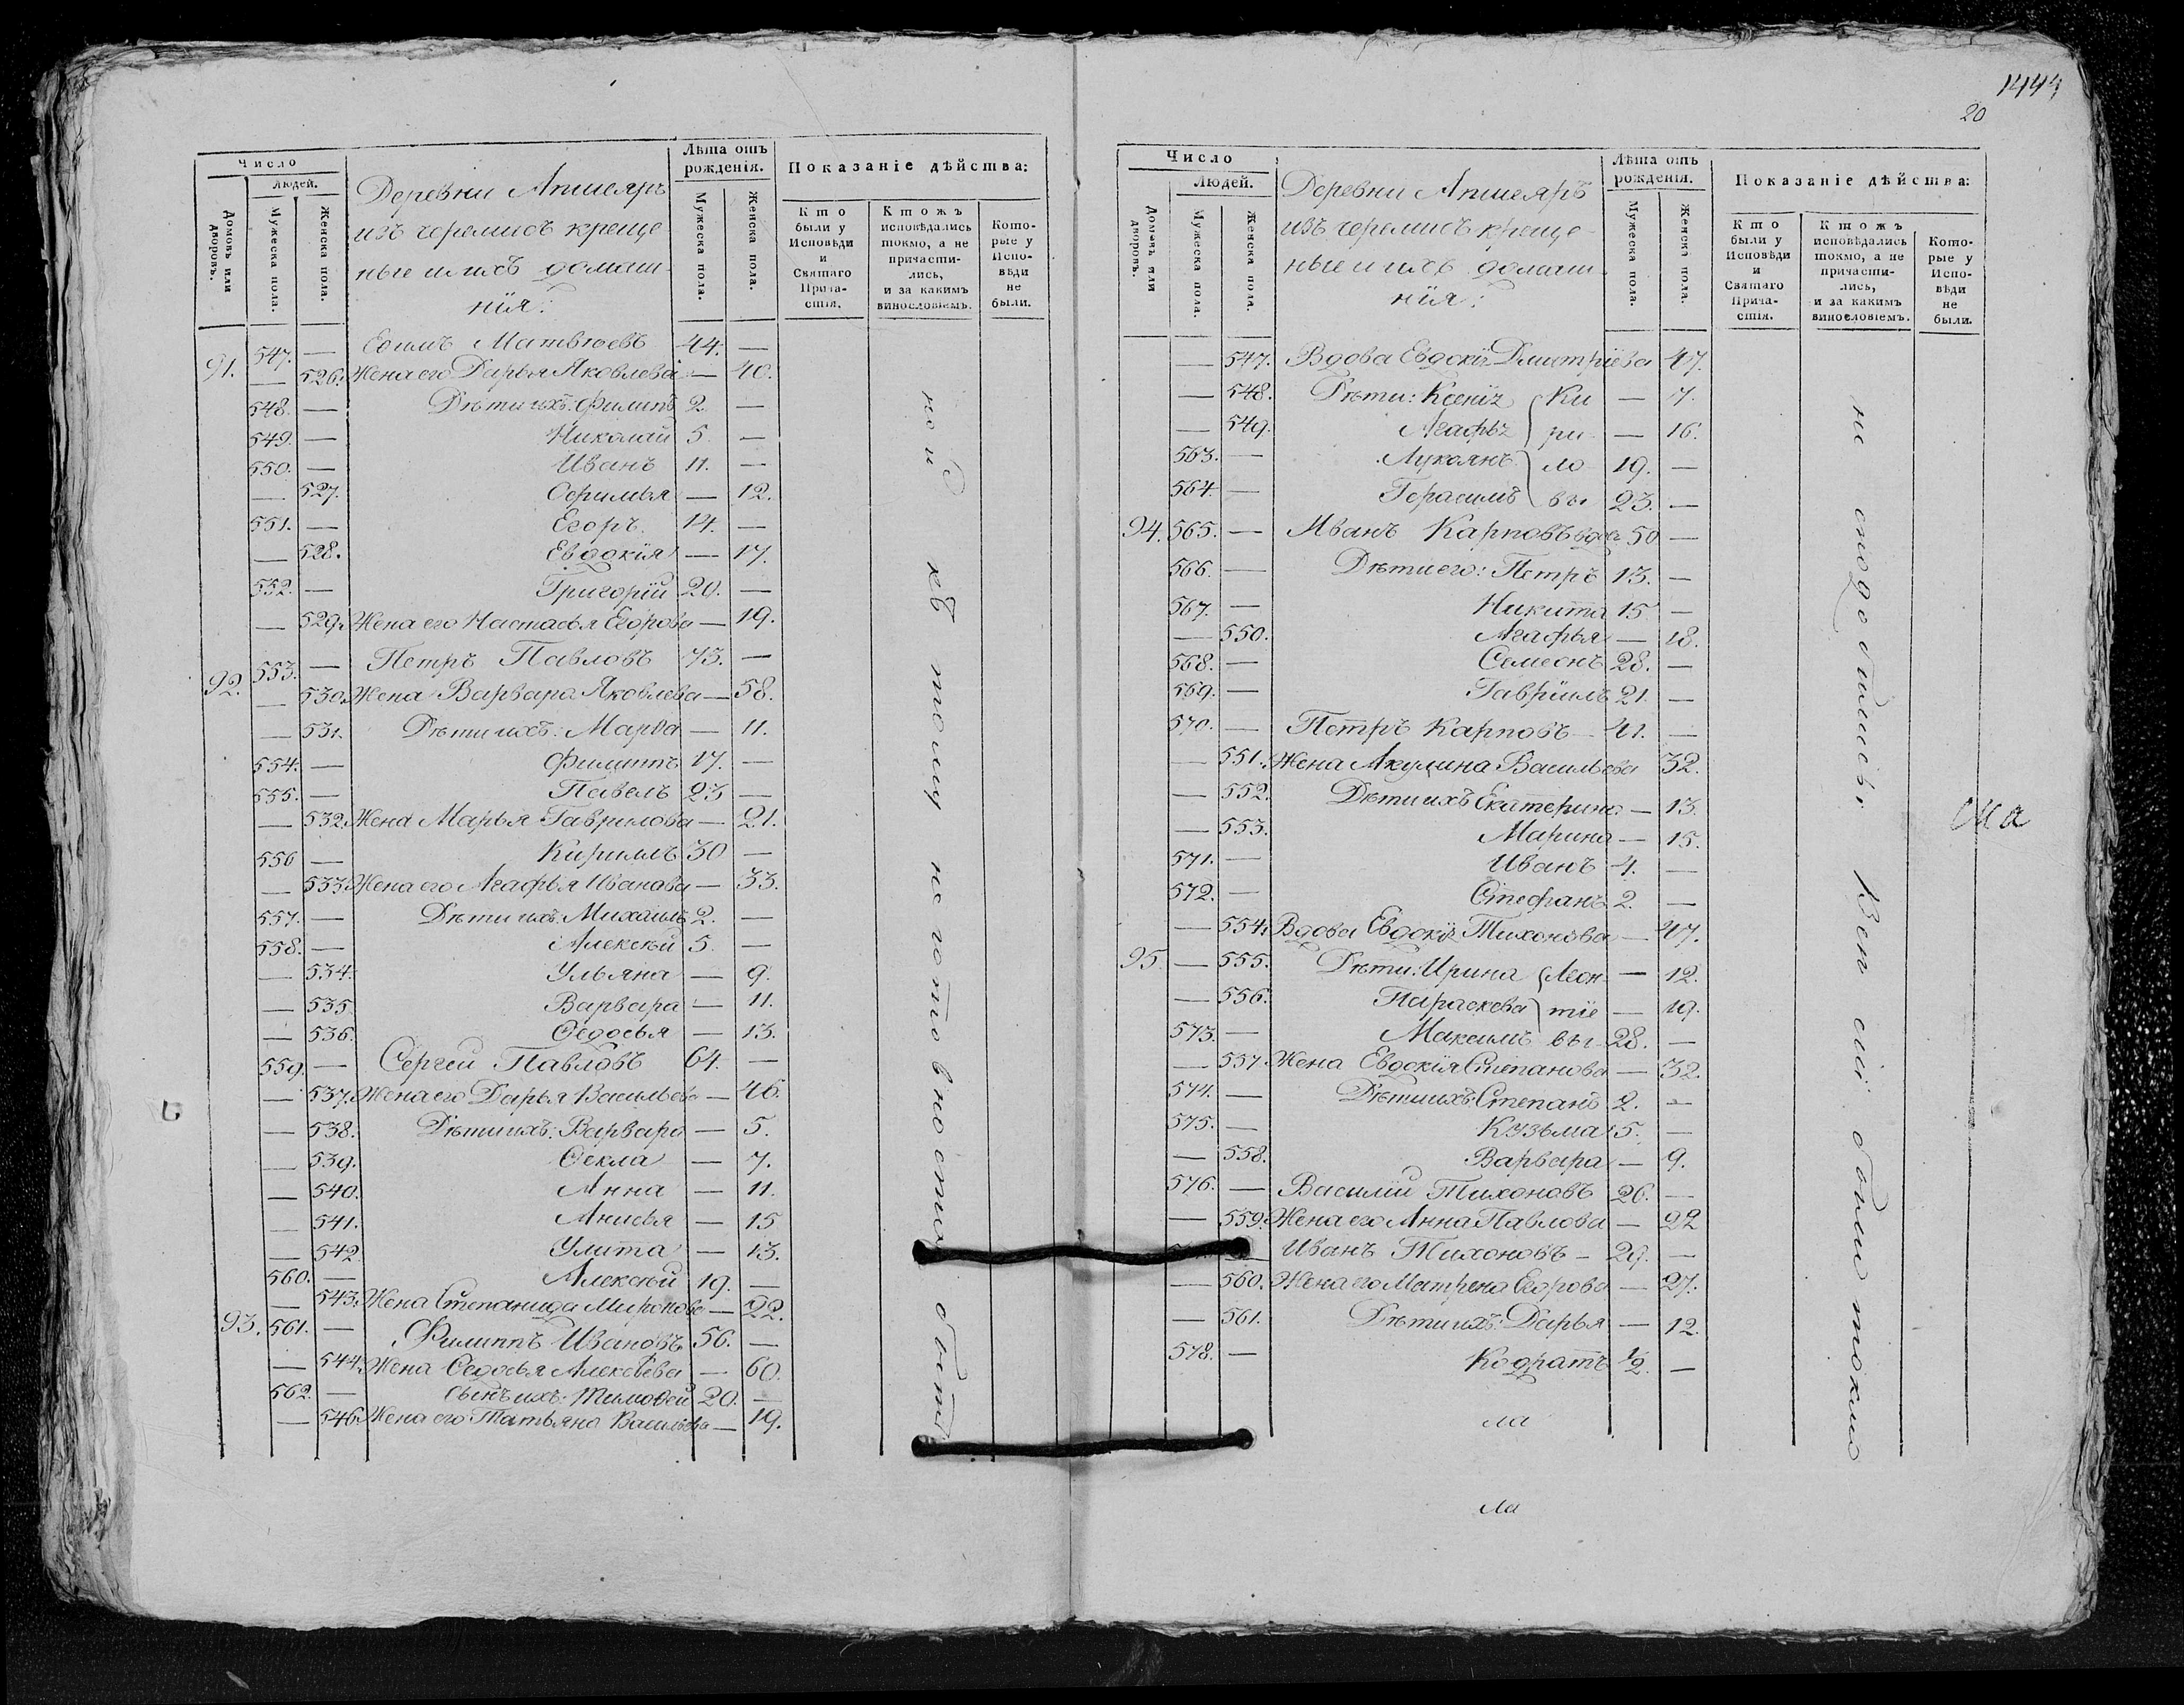 1444
20
Число
Людей.
Домовъ или дворовъ.
Мужеска пола.
Женска пола.
Деревни Апшеяръ
изъ черемисъ креще
ные и ихъ домаш-
нія:
Лѣта отъ рожденія.
Мужеска пола.
Женска пола.
Показаніе дѣйства:
Кто были у Исповѣди и Святаго Прича-стія.
Ктожъ исповѣдались токмо, а не причасти-лись, и за какимъ винословіемъ.
Кото-рые у Испо-вѣди не были.
91. 547. — Ефимъ Матвѣевъ 44. —
— 526. Жена его Дарья Яковлева — 40.
548. — Дѣти ихъ: Филипъ 2. —
549. — Николай 5. —
550. — Иванъ 11. —
— 527. Офимья — 12.
551. — Егоръ 14. —
— 528. Евдокія — 17.
552. — Григорій 20. —
— 529. Жена его Настасья Егорова — 19.
92. 553. — Петръ Павловъ 73. —
— 530. Жена Варвара Яковлева — 58.
— 531. Дѣти ихъ: Марѳа — 11.
554. — Филиппъ 17. —
555. — Павелъ 23 —
— 532. Жена Марья Гаврилова — 21.
556 — Кириллъ 30 —
— 533. Жена его Агафья Иванова — 33.
557. — Дѣти ихъ: Михаилъ 2. —
558. — Алексѣй 5. —
— 534. Ульяна — 9.
— 535. Варвара — 11.
— 536. Ѳедосья — 13.
559. — Сергѣй Павловъ 64. —
— 537. Жена его Дарья Васильева — 46.
— 538. Дѣти ихъ: Варвара — 5.
— 539. Ѳекла — 7.
— 540. Анна — 11.
— 541. Анисья — 15
— 542. Улита — 13.
560. — Алексѣй 19. —
— 543. Жена Степанида Миронова — 22.
93. 561. — Филиппъ Ивановъ 56. —
— 544. Жена Ѳедосья Алексѣева — 60.
562. — Сынъ ихъ: Тимоѳей 20. —
— 546. Жена его Татьяна Васильева — 19.
по къ тому не готовности объ
Число
Людей.
Домовъ или дворовъ.
Мужеска пола.
Женска пола.
Деревни Апшеяръ
изъ черемисъ креще-
ные и ихъ домаш-
нія:
Лѣта отъ рожденія.
Мужеска пола.
Женска пола.
Показаніе дѣйства:
Кто были у Исповѣди и Святаго Прича-стія.
Ктожъ исповѣдались токмо, а не причасти-лись, и за какимъ винословіемъ.
Кото-рые у Испо-вѣди не были.
— 547. Вдова Евдокія Дмитріева 47.
— 548. Дѣти: Ксенія Ки — 7.
— 549. Агафья ри — 16.
563. — Лукоянъ ло 19. —
564. — Герасимъ вы 23. —
94. 565. — Иванъ Карповъ вдов 50 —
566. — Дѣти его: Петръ 13. —
567. — Никита 15 —
— 550. Агафья — 18.
568. — Семеонъ 28. —
569. — Гавріилъ 21. —
570. — Петръ Карповъ 41. —
— 551. Жена Акулина Васильева 32.
— 552. Дѣти ихъ Екатерина — 13.
— 553. Марина — 15.
571. — Иванъ 4. —
572. — Стефанъ 2. —
— 554. Вдова Евдокія Тихонова — 47.
95. — 555. Дѣти: Ирина Леон- — 12.
— 556. Параскева тіе — 19.
573. — Максимъ вы 28. —
— 557. Жена Евдокія Степанова — 32.
574. — Дѣти ихъ: Степанъ 2. —
575. — Кузьма 5. —
— 558. Варвара — 9.
576. — Василій Тихоновъ 26. —
— 559. Жена его Анна Павлова — 22
— Иванъ Тихоновъ 29. —
— 560. Жена его Матрена Егорова — 27.
— 561. Дѣти ихъ: Дарья — 12.
578. — Кодратъ 1/2. —
не сподобились Вси сіи были токмо
ла
ла